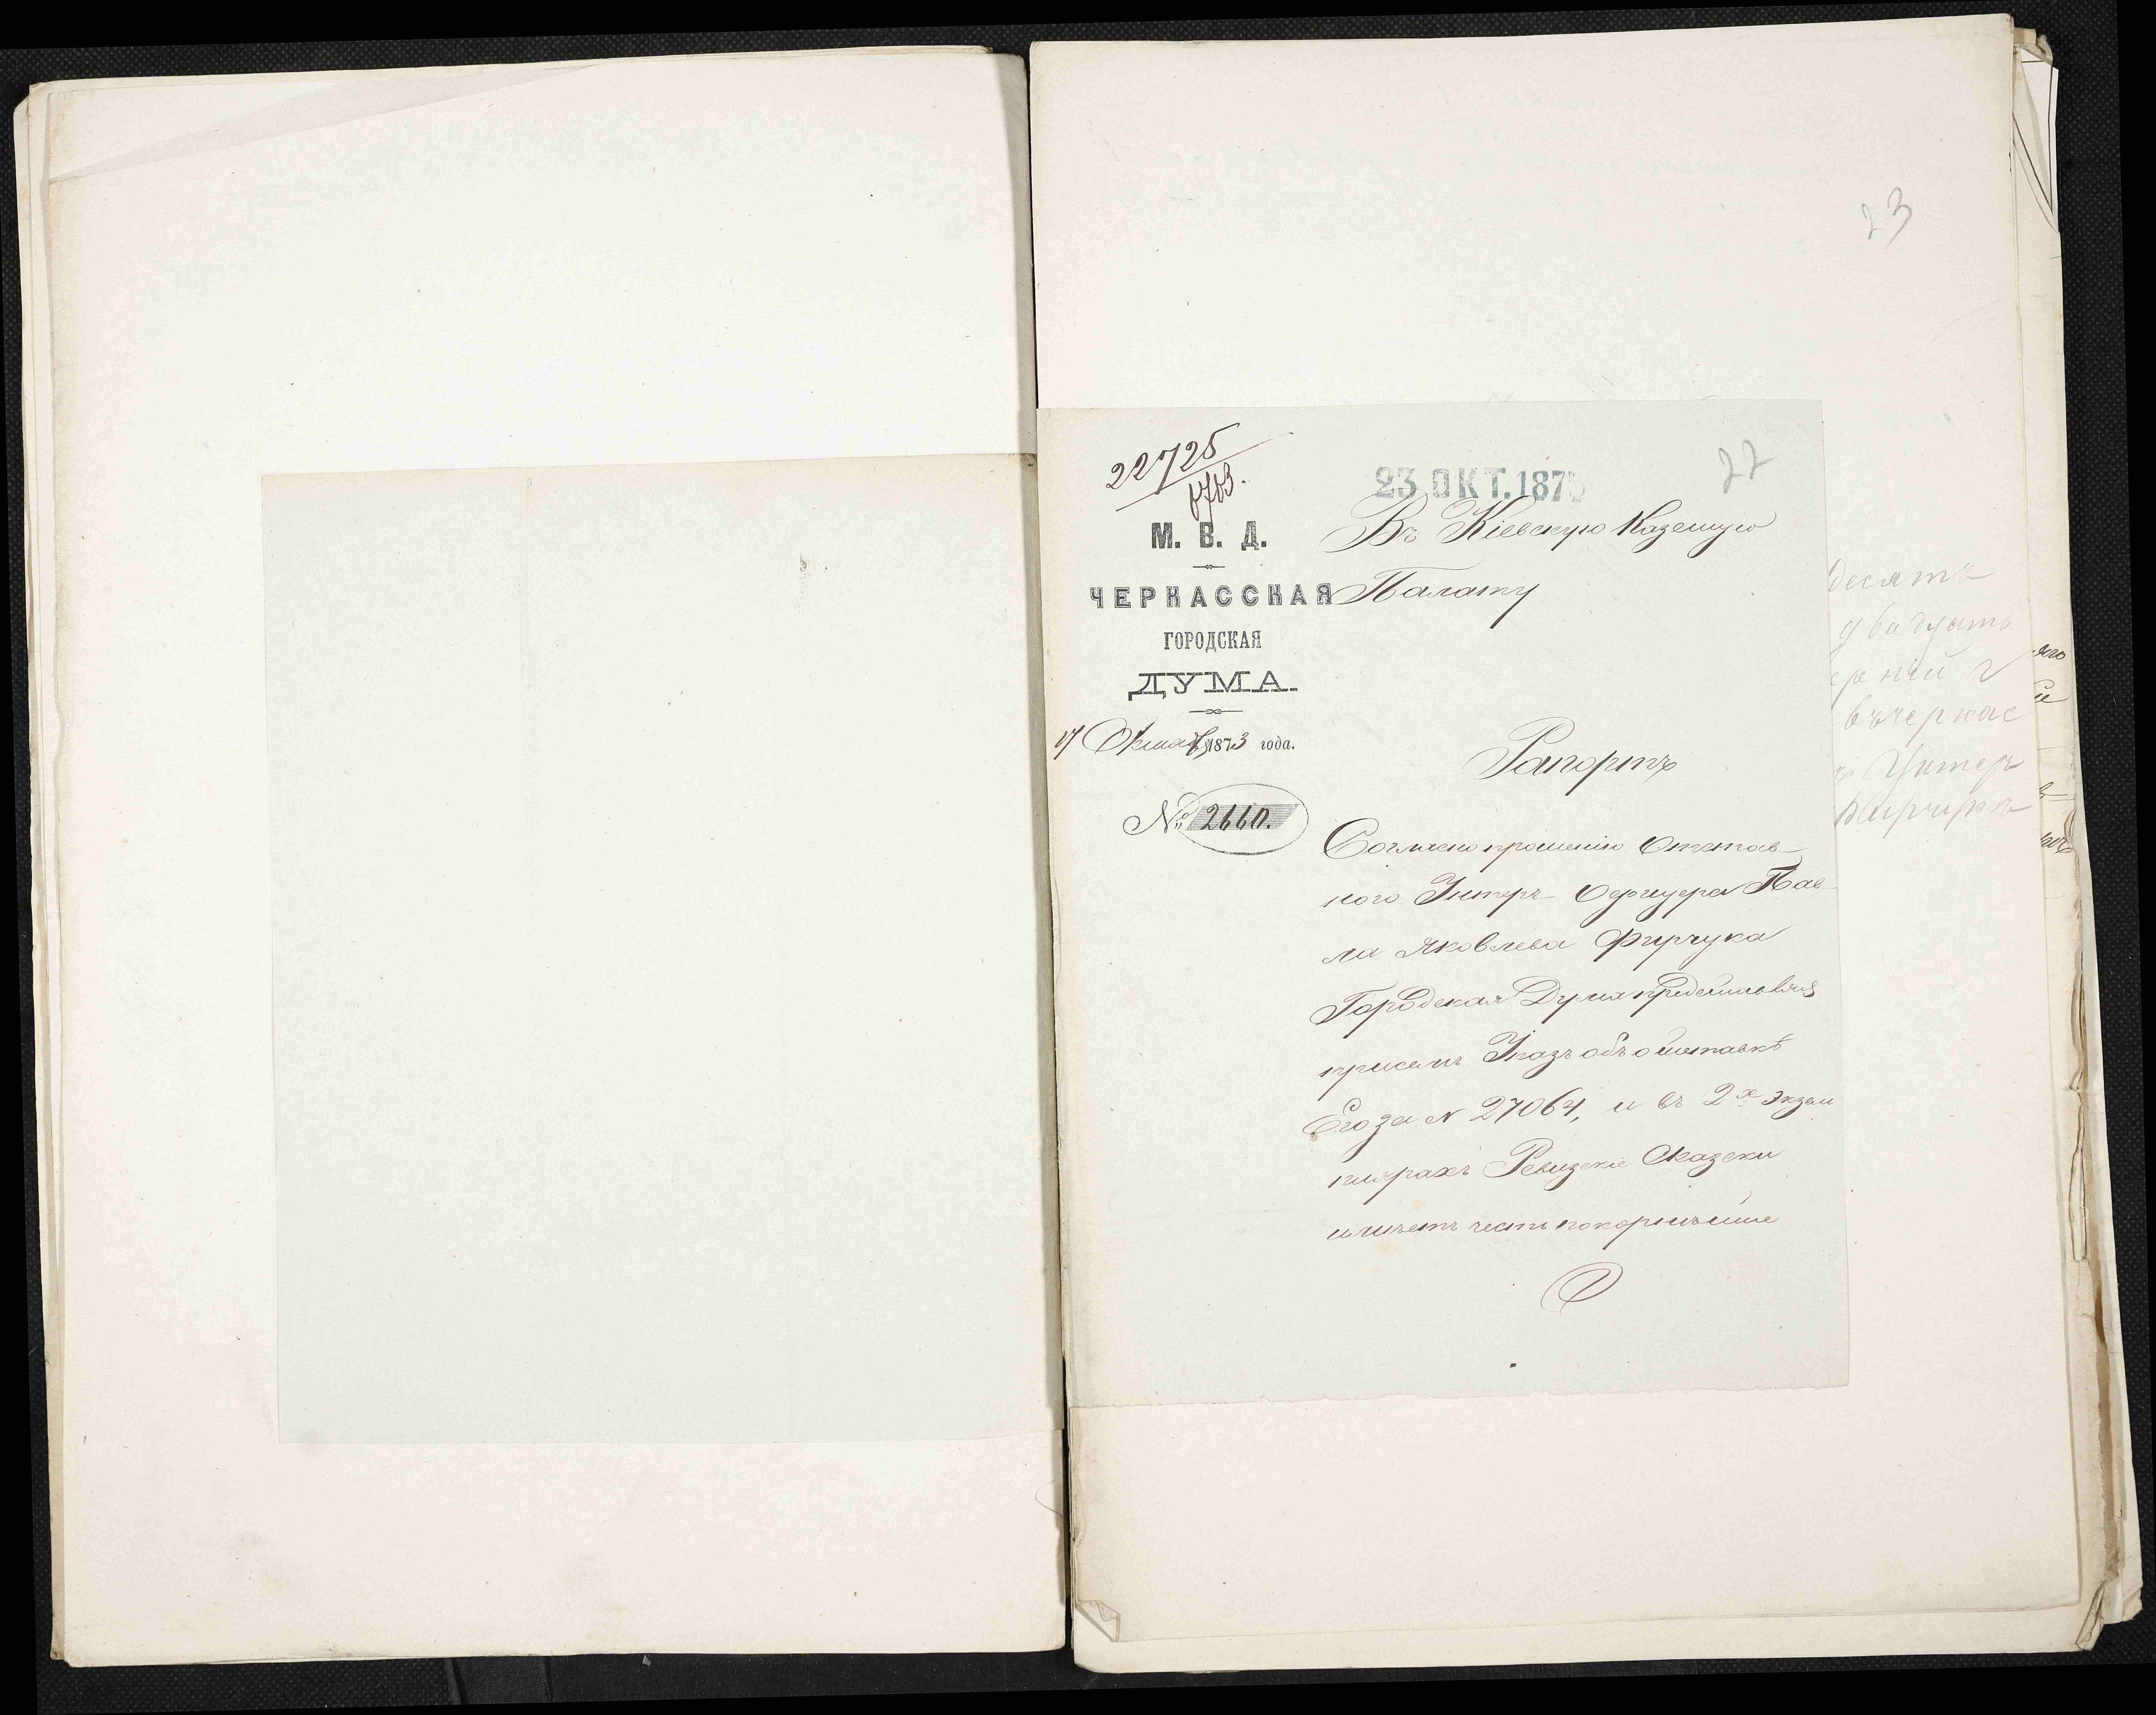 23
22725
6703.
23 ОКТ. 187
22
М. В. Д.
ЧЕРКАССКАЯ
ГОРОДСКАЯ
ДУМА.
17 Октяб 1873 года.
№ 2660.
Въ Кіевскую Казенную
Палату
Рапортъ
Согласно прошенію Отстав-
ного Унтеръ-Офицера Пав-
ла Яковлева Фурчука
Городская Дума представляя
присемъ Указъ объ отставкѣ
Его за № 27064, и въ 2х экзем
плярахъ Ревизскіе Сказски
имѣетъ честь покорнѣйше
десять
двадцать
вчеркас
Унтеръ